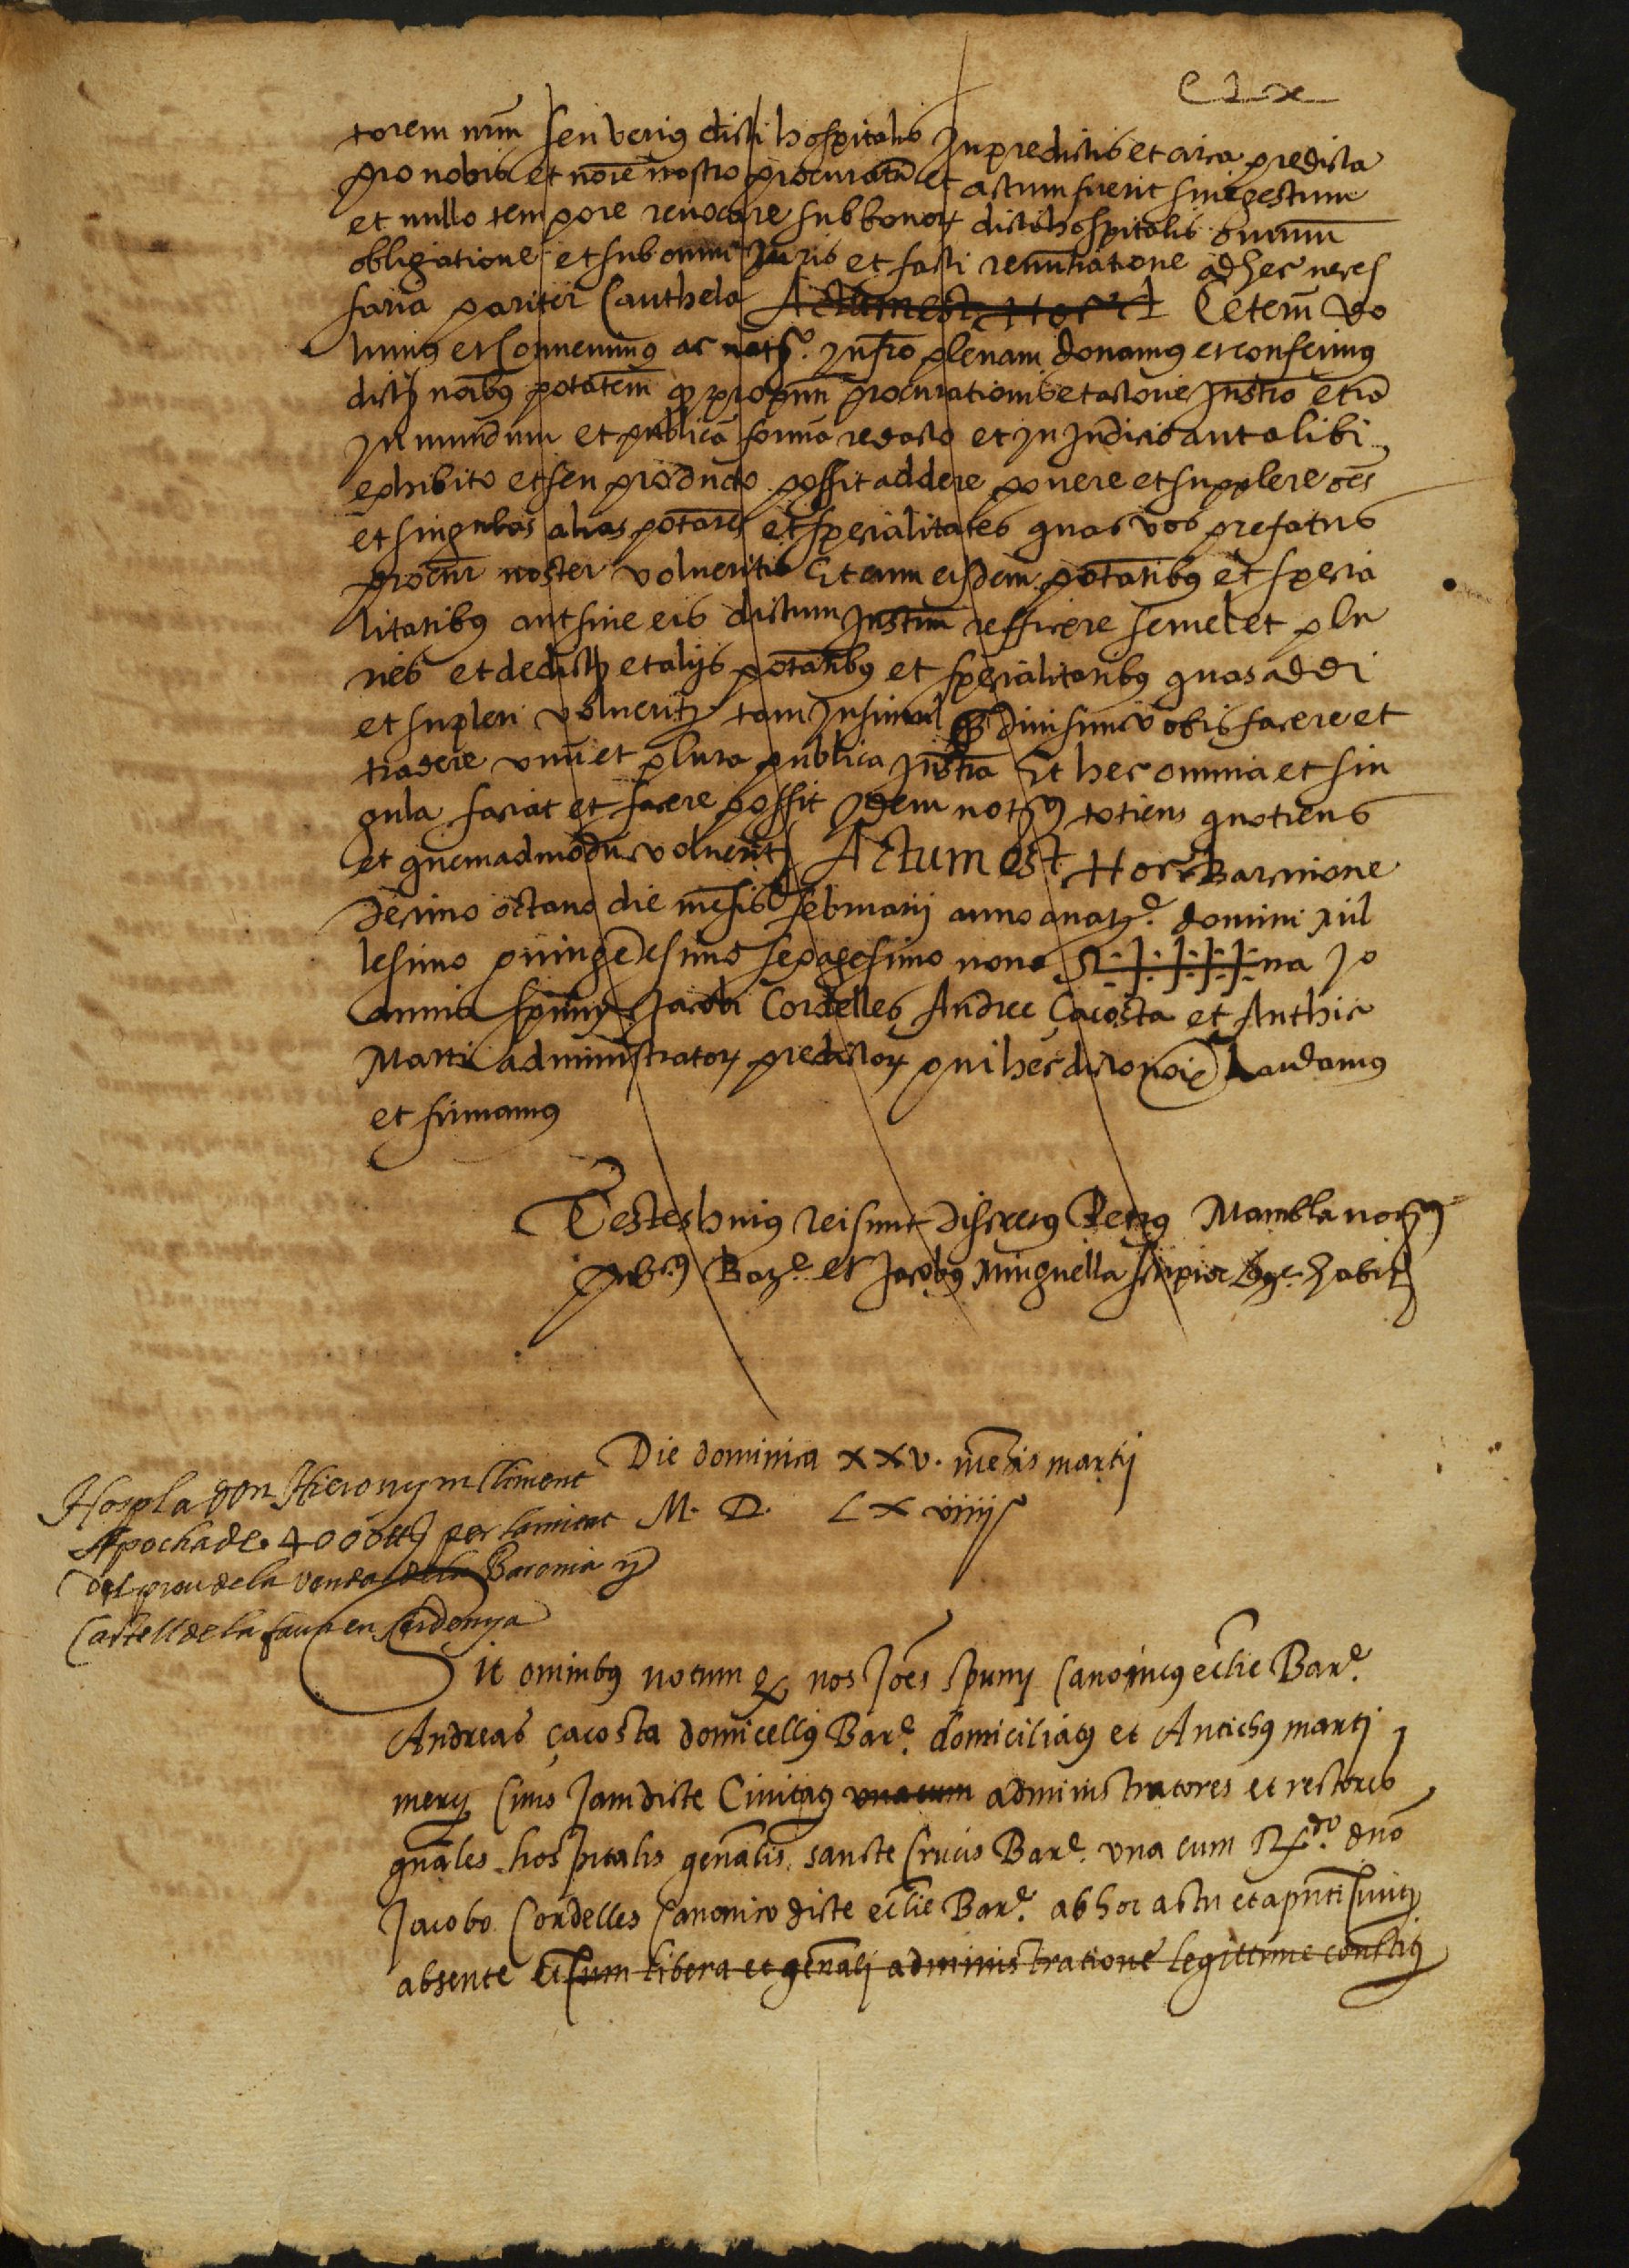 clx
torem nr̄m seu verius dicti hospitalis In predictis et circa predicta
pro nobis et nōie nostro procuratū et actum fuerit sive gestum
et nullo tempore revocare sub bonorꝝ dicti hospitalis omniū
obligatione et sub omni Juris et facti renūtiatione ad hec neces
saria pariter Cauthela Actum est Hoc Cetem̄ vo
lumus et convenimus ac notº. Infro plenam donamus et conferimus
potatem ꝙ procurationis et actorie Instro etiā
In mundum et publicā formā redacto et In Judicio aut alibi
exhibito et seu producto possit addere ponere et supplere oēs
et singulas alias potates et specialitates quas vos prefatus
procur noster volueritis Et cum eisdem potatibꝰ et specia
litatibꝰ aut sine eis dictum Instrm̄ refficere semel et plu
ries et de dictis et alijs potatibꝰ et specialitatibꝰ quas addi
et supleri volueritis tam Insimul ꝙ divisim vobis facere et
tradere unū et plura publica Instra Et hec omnia et sin
gula faciat et facere possit Idem notꝰ totiens quotiens
et quemadmodū voluerit Actum est Hoc Barcinone
decimo octavo die mēsis februarij anno a natᵉ. domini mil
lesimo quingētesimo sexagesimo nono Signa Jo
annis Spuny Jacobi Cordelles Andree Çacosta et Anthic
Marti administratorꝝ predictorꝝ qui hec dicto nōie laudamus
et firmamus
Testes huius rei sunt discretus Petrus Mambla notꝰ
pubᶜꝰ Barᵉ. et Jacobus Minguella scriptor habit
Die dominica xxv. mēsis martij
M. D. Lxviiij
Hospla don Hieronym Climent
Apocha de 4000 ll per lo
del preu de la venda dela Baronia y
Castell de la fava en Serdenya
Sit omnibꝰ notum ꝙ nos Joēs Spuny Canonicus ecclie Barᵉ.
Andreas çacosta domicellus Barᵉ. domiciliatus et Antichus marti
merꝝ Civis Jamdicte Civitatis una cum administratores et rectores
gn̄ales hospitalis gen̄alis sancte Crucis Barᵉ. una cum R.ᵈᵒ dn̄o
Jacobo Cordelles Canonico dicte ecclie Barᵉ. ab hoc actu et apn̄ti Civitᵉ
absente Et cum libera et gen̄ali administratione legittime constitᵉ